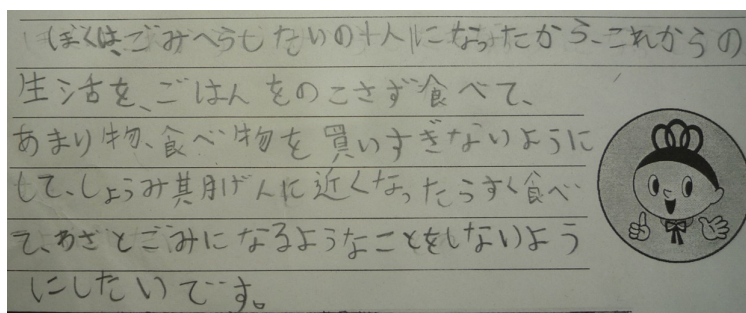 ぼくは、ごみへらしたいの1人になったから、これからの
生活を、ごはんをのこさず食べて、
あまり物、食べ物を買いすぎないように
して、しょうみ期げんに近くなったらすぐ食べ
て、わざとごみになるようなことをしないよう
にしたいです。